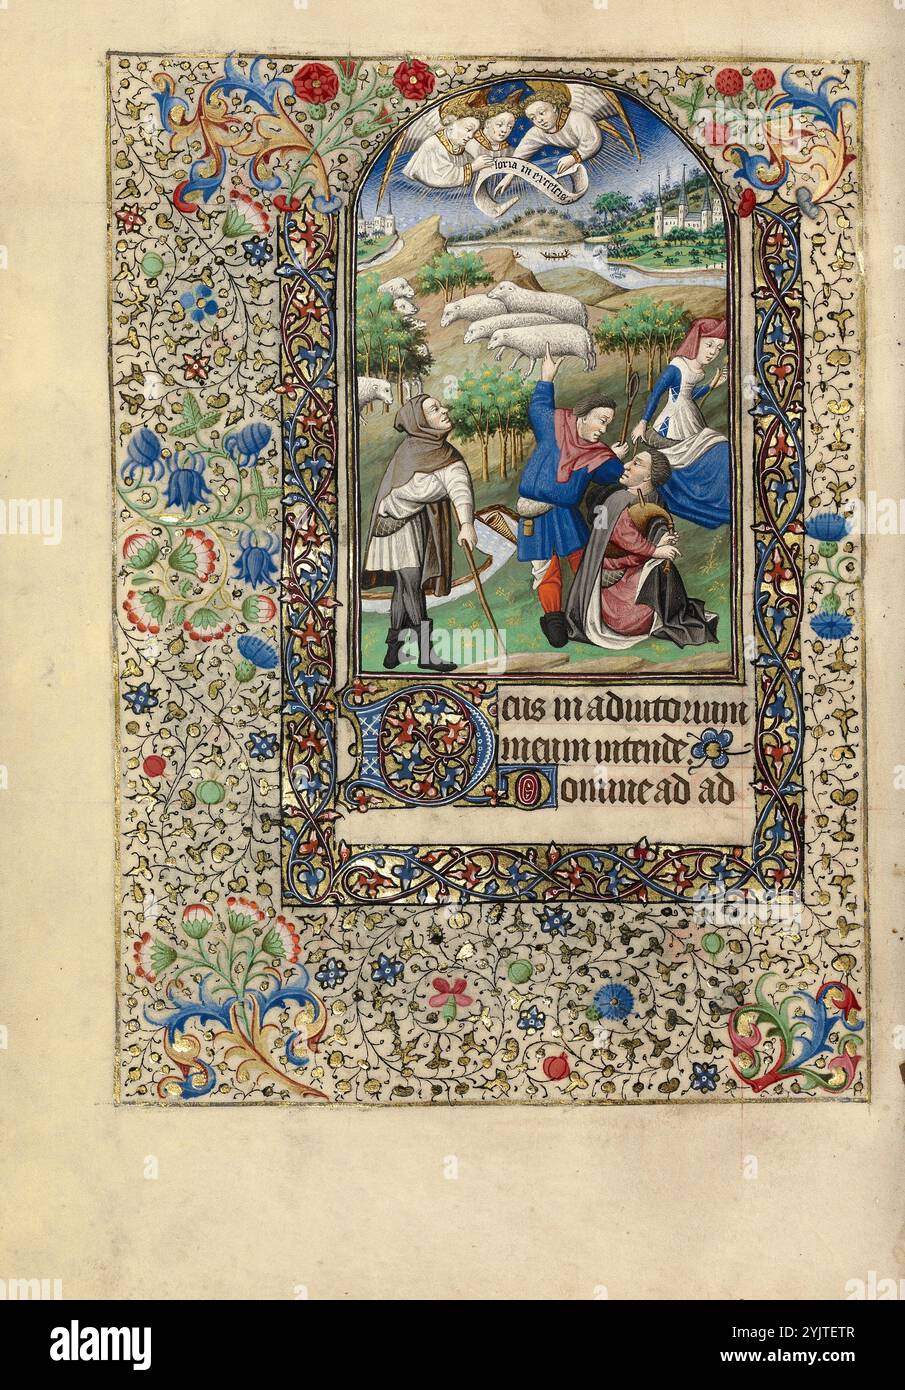 loria in excelsis
Deus in adiutorium
meum intende
Domine ad ad
alamy
Image ID: 2YJTETR
www.alamy.com